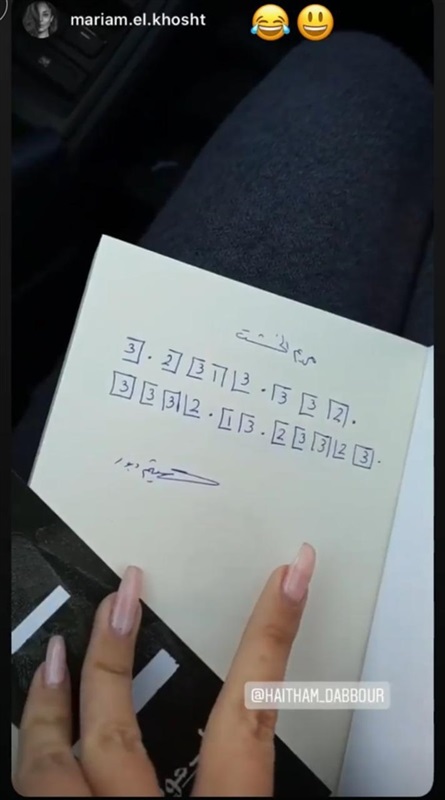 mariam.el.khosht 😂😃
مريم الخشت
3 . 2 3 1 3 . 3 3 2 .
3 3 3 2 . 1 3 . 2 3 3 2 3 .
هيثم دبور
@HAITHAM_DABBOUR